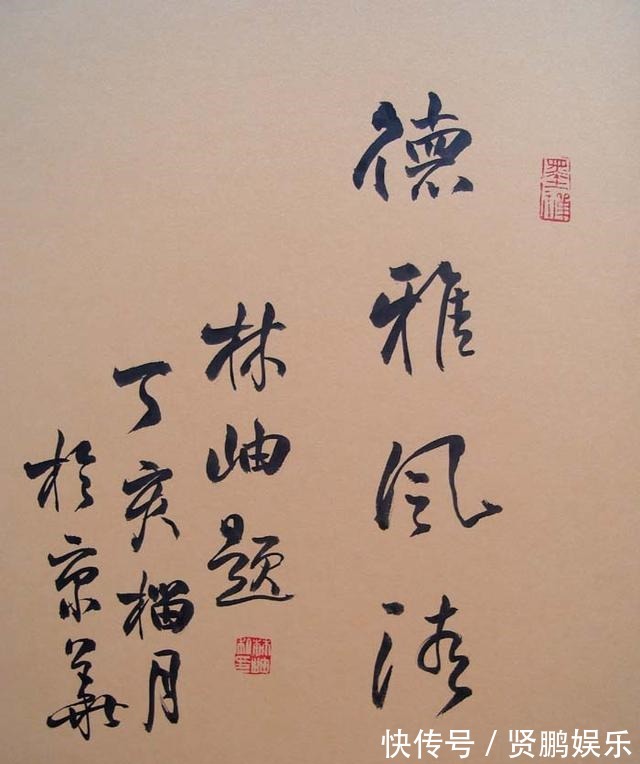 德雅风清
林岫题
丁亥榴月
于京华
快传号/贤鹏娱乐